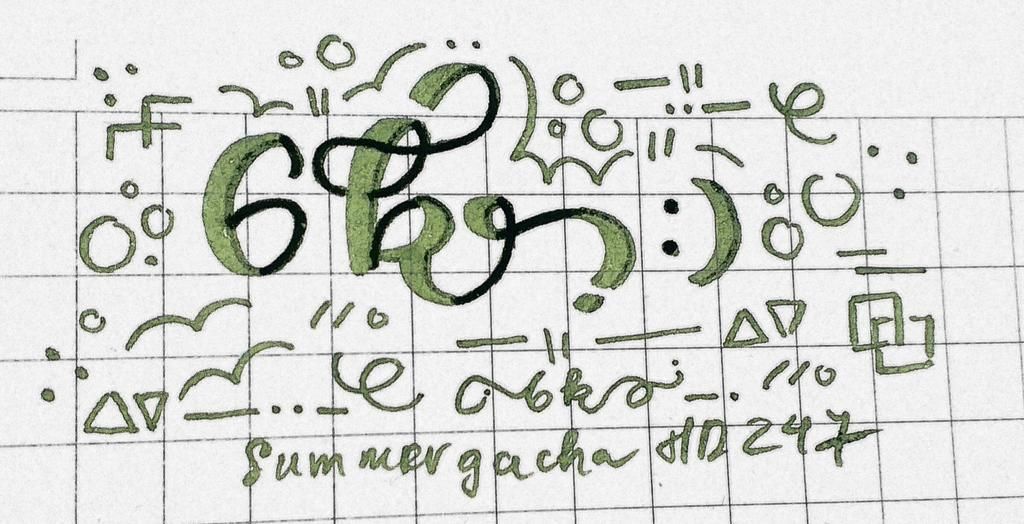 6k :)
6k
Summergacha HD247